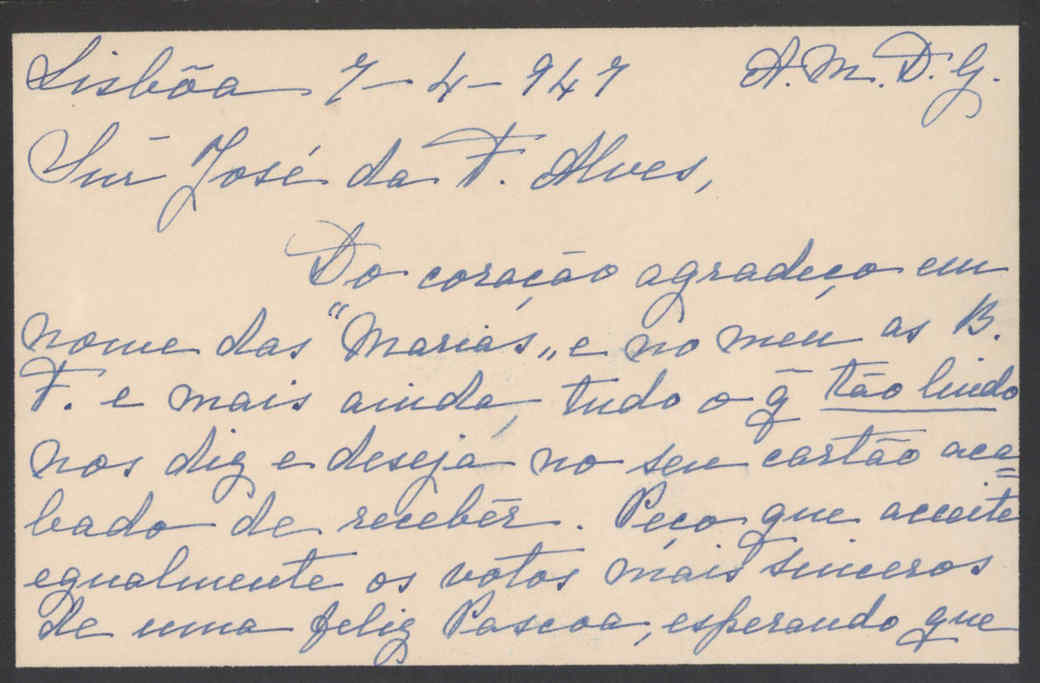 Lisbôa 7-4-947 A.M.D.G.
Snr José da F. Alves,
Do coração agradeço em
nome das "Marias„ e no meu as B.
F. e mais ainda, tudo o q̃ tão lindo
nos diz e deseja no seu cartão aca=
bado de recebêr. Peço que acceite
egualmente os votos mais sinceros
de uma feliz Pascoa, esperando que